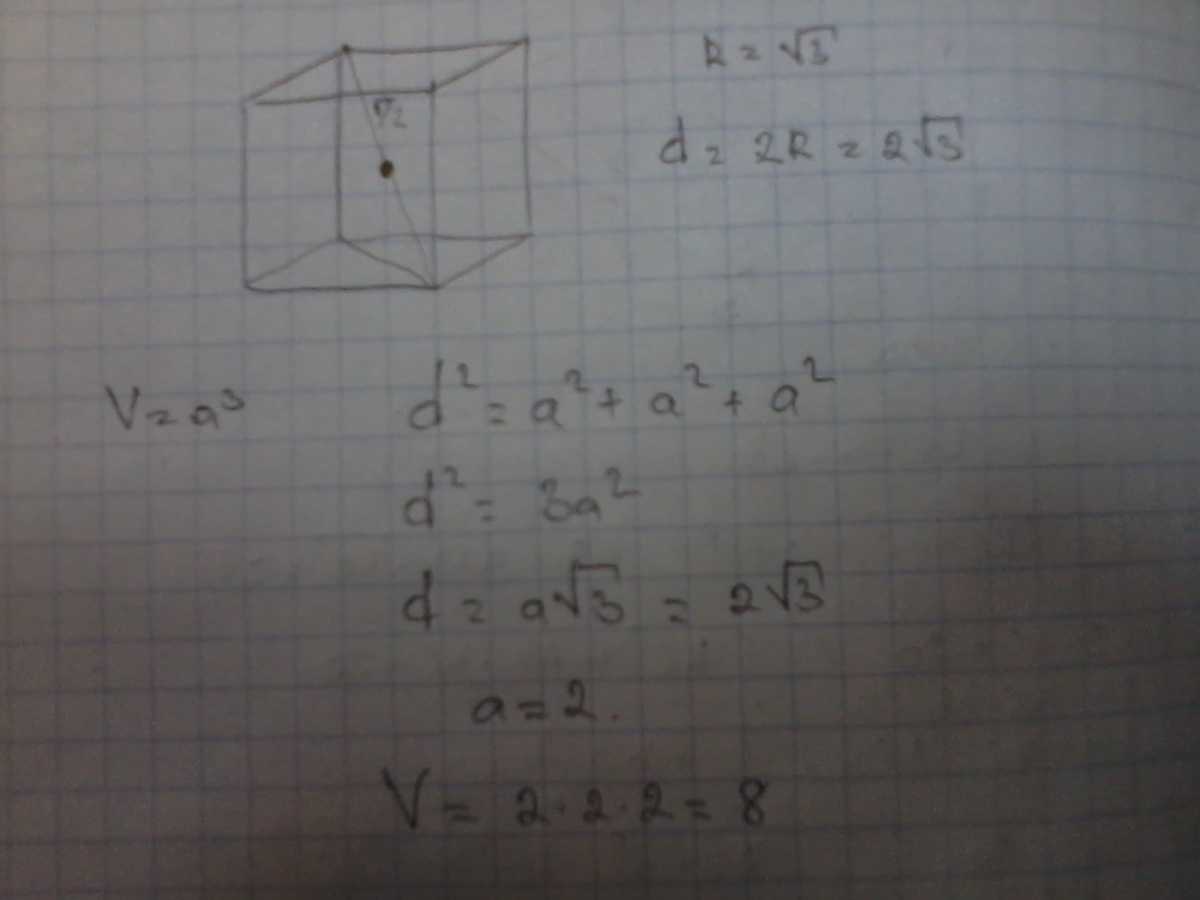 R = √3
d = 2R = 2√3
V = a³ d² = a² + a² + a²
d² = 3a²
d = a√3 = 2√3
a = 2.
V = 2 · 2 · 2 = 8